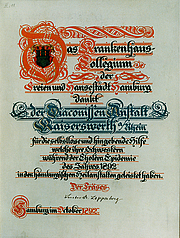 Das Krankenhaus
Collegium
der
Freien und Hansestadt Hamburg
dankt
der Diaconissen Anstalt
Kaiserswerth a/Rhein
für die selbstlose und hingebende Hilfe
welche ihre Schwestern
während der Cholera Epidemie
des Jahres 1892
in den hamburgischen Heilanstalten geleistet haben.
Der Präses
Hamburg im October 1892.